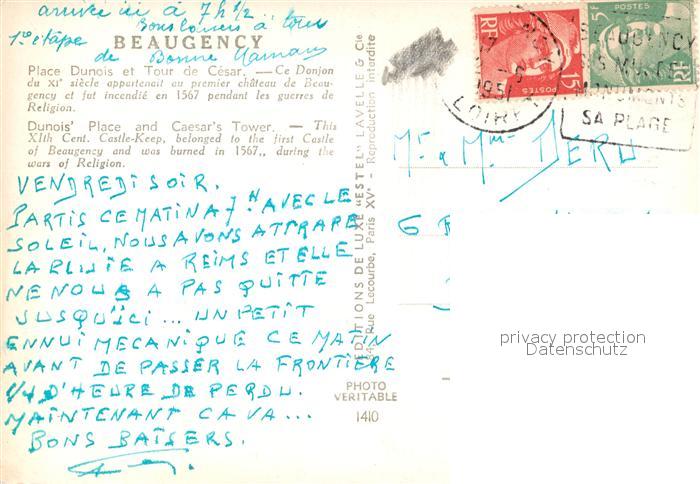 arrivé ici à 7h ½
Bons baisers à tous
1re étape
BEAUGENCY
de Bonne Maman
Place Dunois et Tour de César. — Ce Donjon
du XIe siècle appartenait au premier château de Beau-
gency et fut incendié en 1567 pendant les guerres de
Religion.
Dunois' Place and Caesar's Tower. — This
XIth Cent. Castle-Keep, belonged to the first Castle
of Beaugency and was burned in 1567,, during the
wars of Religion.
VENDREDI SOIR.
PARTIS CE MATIN A 7H AVEC LE
SOLEIL, NOUS AVONS ATTRAPÉ
LA PLUIE A REIMS ET ELLE
NE NOUS A PAS QUITTE
JUSQU'ICI... UN PETIT
ENNUI MECANIQUE CE MATIN
AVANT DE PASSER LA FRONTIÈRE
1/4 D'HEURE DE PERDU.
MAINTENANT CA VA...
BONS BAISERS.
EDITIONS DE LUXE "ESTEL" LAVELLE & Cie
84, Rue Lecourbe, Paris XVe - Reproduction interdite
PHOTO
VERITABLE
1410
RF
15F
RF
5F
1951
LOIRET
BEAUGENCY
MONUMENTS
SA PLAGE
Mr & Mme DERU
6
privacy protection
Datenschutz